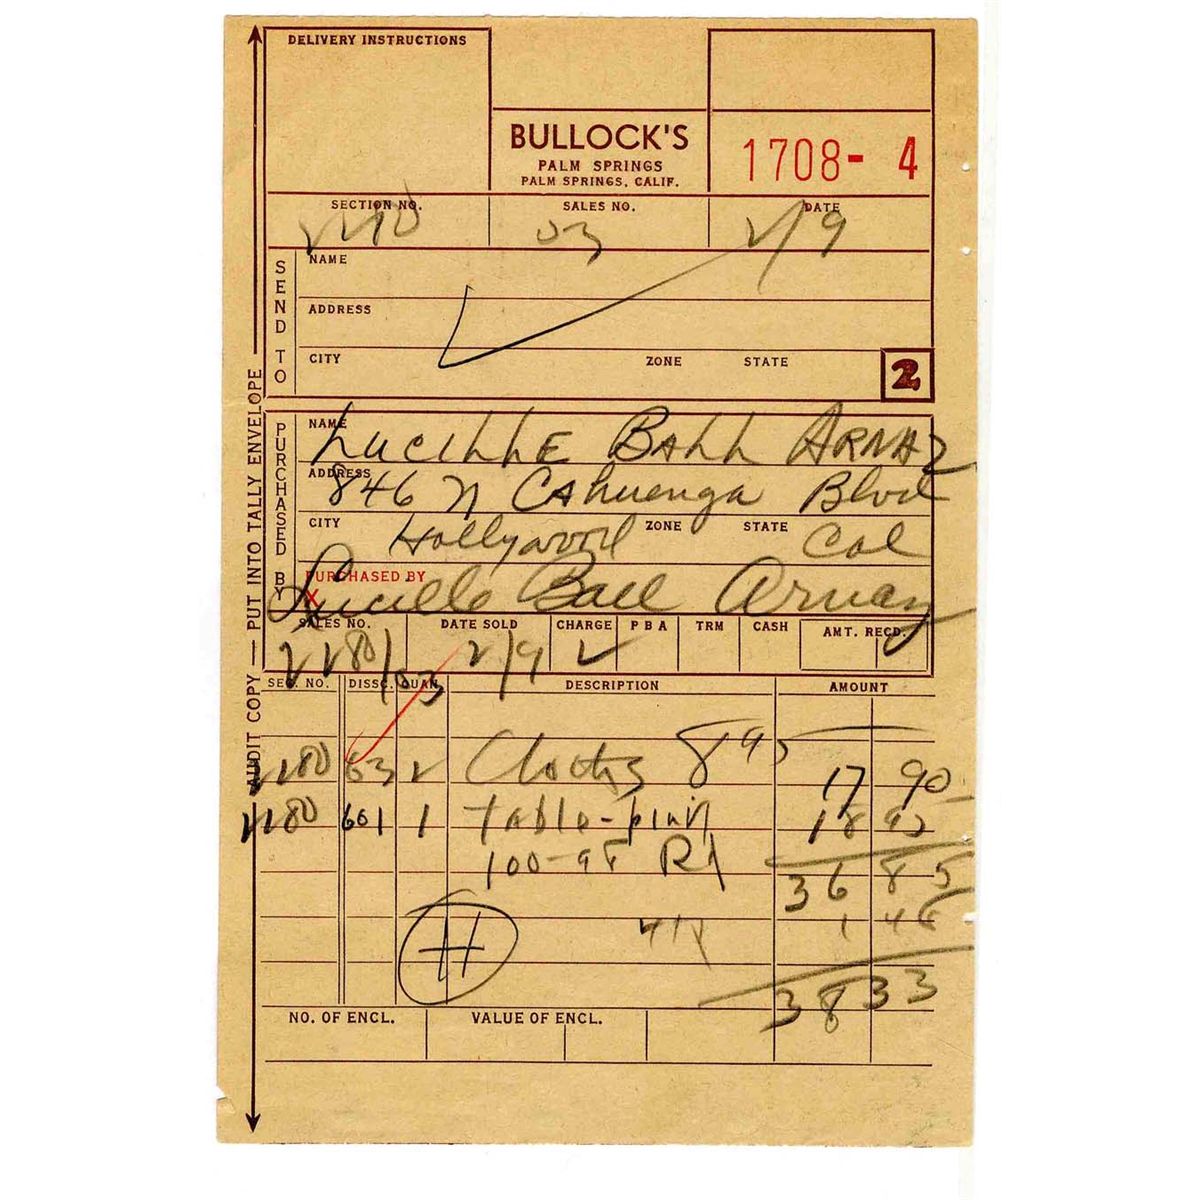 DELIVERY INSTRUCTIONS
BULLOCK'S
PALM SPRINGS
PALM SPRINGS, CALIF.
1708- 4
SECTION NO. SALES NO. DATE
03 2/9
SEND TO
NAME
ADDRESS
CITY ZONE STATE
2
AUDIT COPY — PUT INTO TALLY ENVELOPE
PURCHASED BY
NAME LUCILLE BALL ARNAZ
ADDRESS 846 N Cahuenga Blvd
CITY Hollywood ZONE STATE Cal
PURCHASED BY
X Lucille Ball Arnaz
SALES NO. DATE SOLD CHARGE P B A TRM CASH AMT. RECD.
2280/03 2/9 ✓
SEC. NO. DISSC. QUAN. DESCRIPTION AMOUNT
2280 63 2 Cloths 895 17 90
2280 661 1 table-plain 18 95
36 85
1 48
38 33
NO. OF ENCL. VALUE OF ENCL.